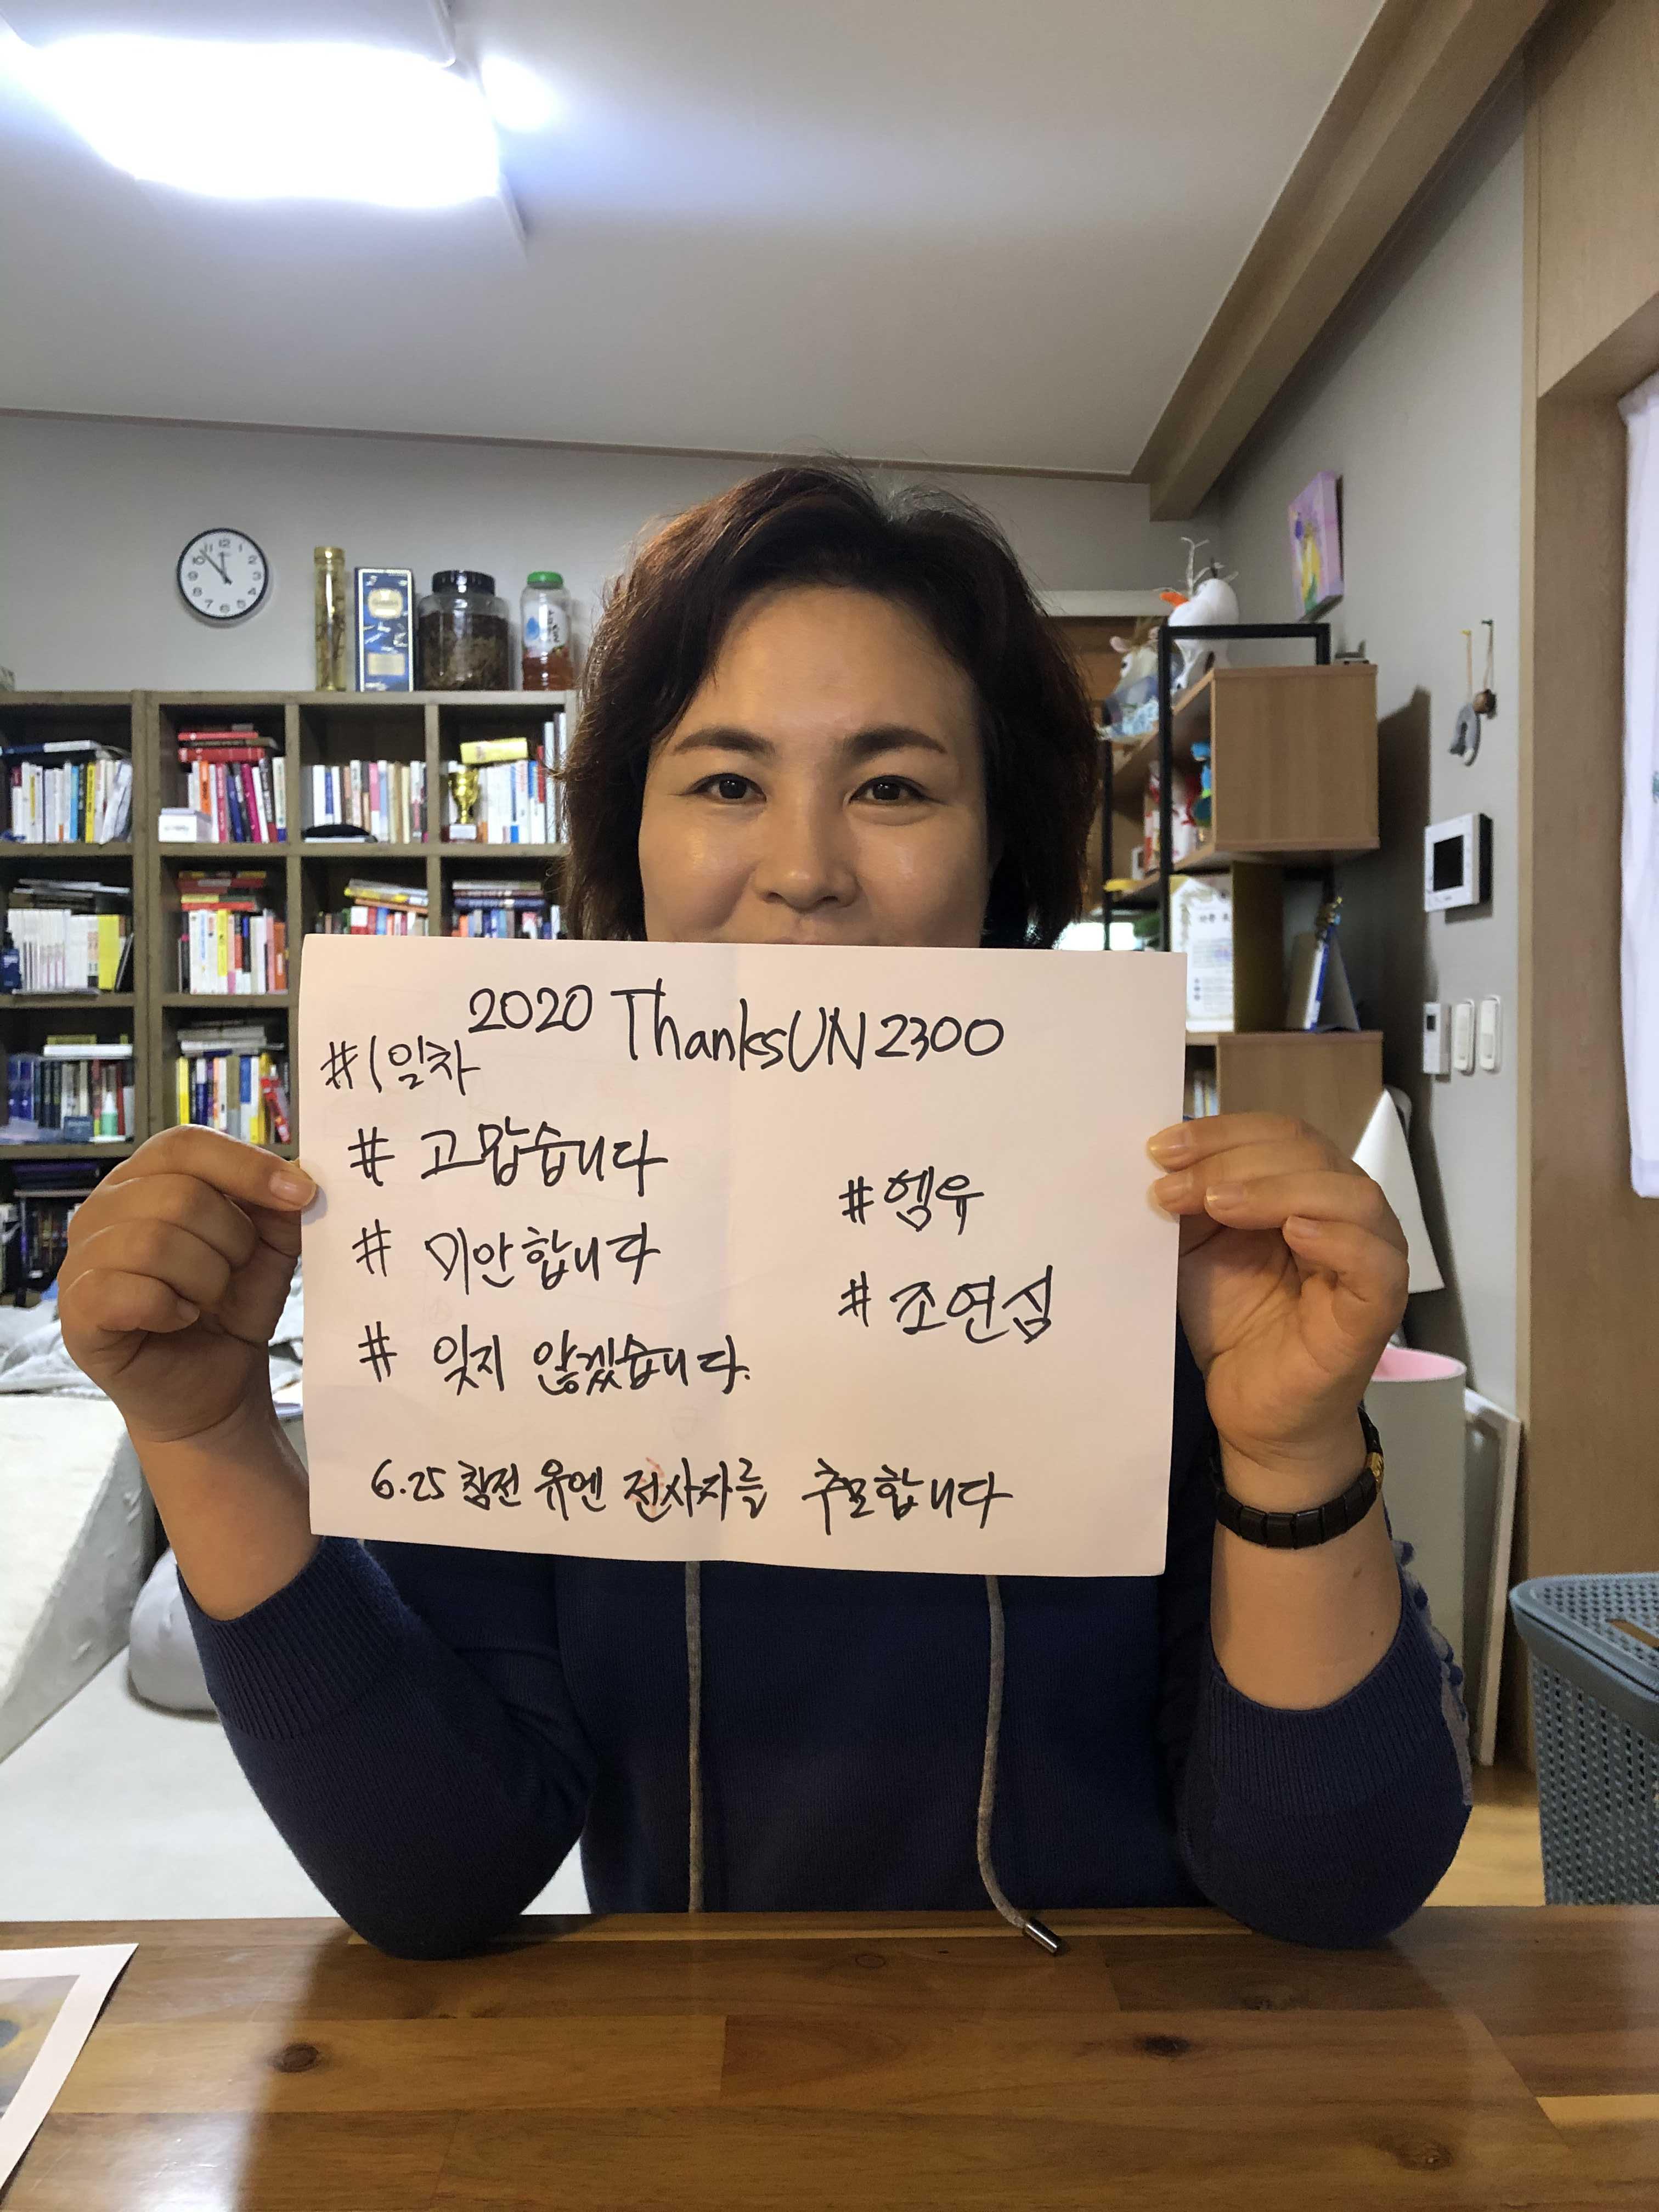 2020 ThanksUN2300
#1일차
# 고맙습니다
# 미안합니다
# 잊지 않겠습니다.
#엠유
#조연심
6.25 참전 유엔 전사자를 추모합니다